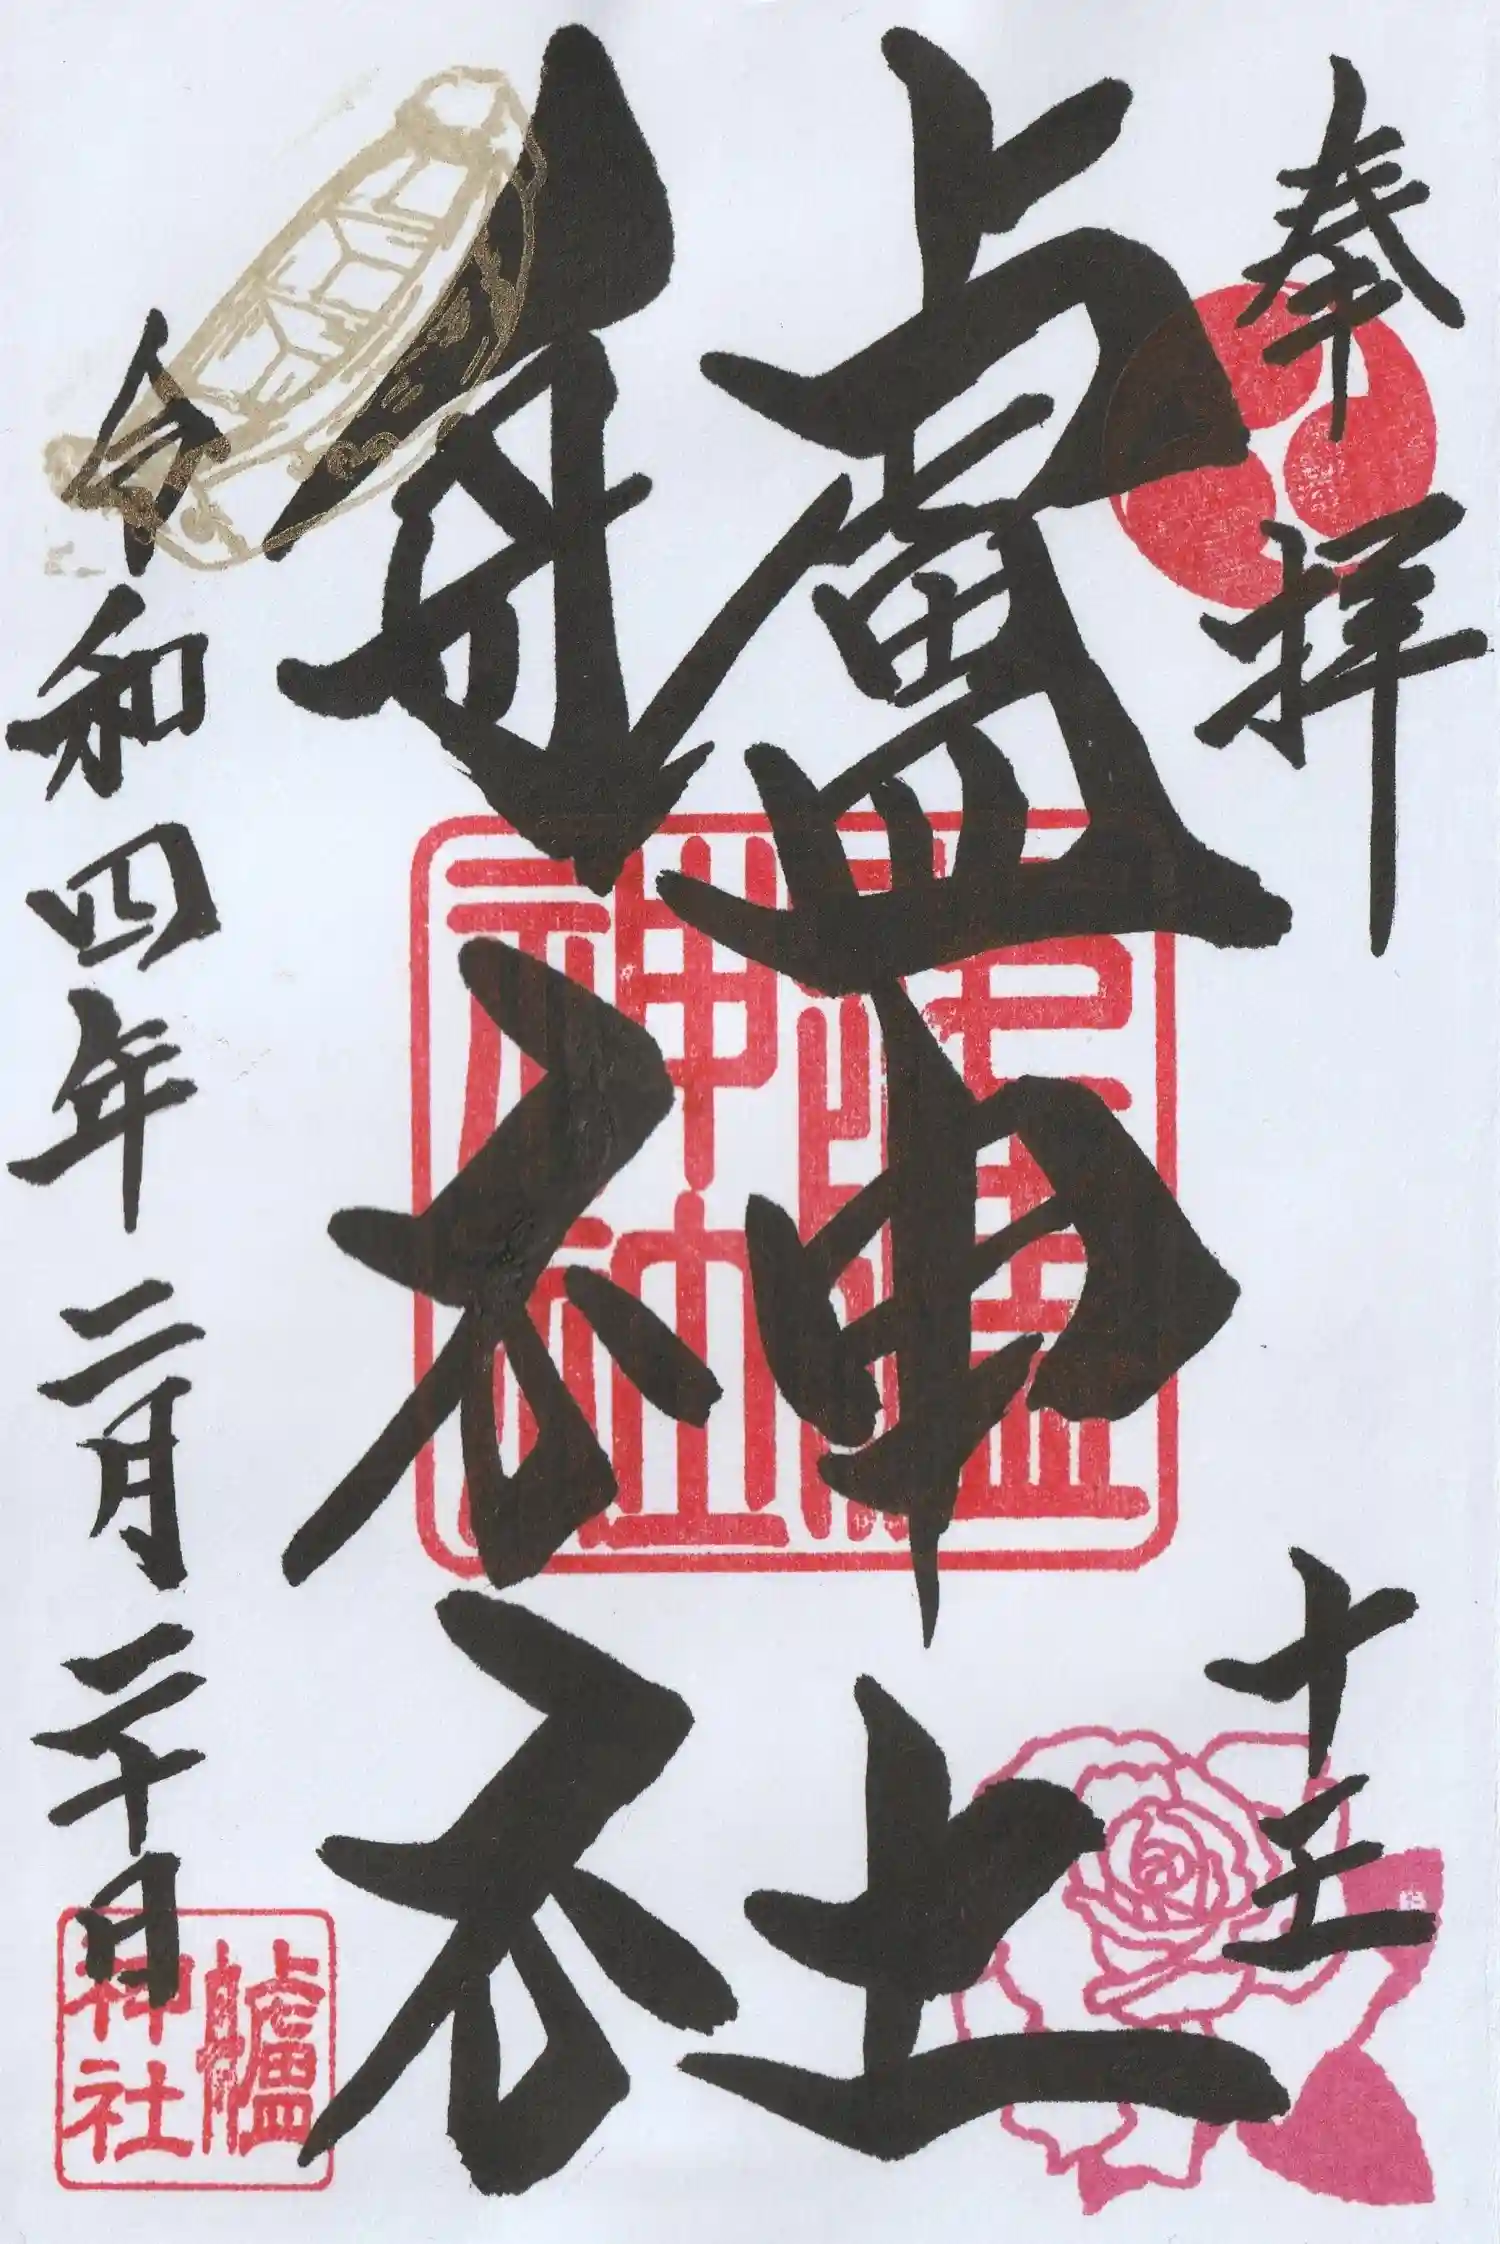 奉拝
十王
艫神社
艫
神社
令和四年二月二十日
艫
神社